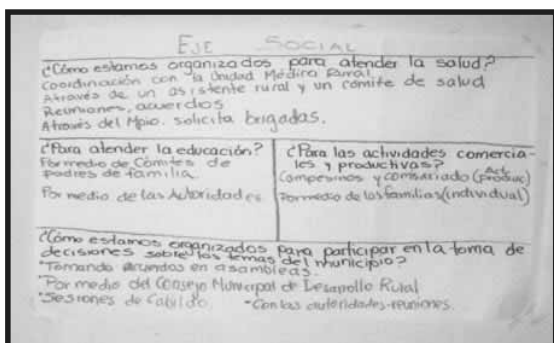 EJE SOCIAL
¿Cómo estamos organizados para atender la salud?
Coordinación con la Unidad Médica Rural
Através de un asistente rural y un comite de salud
Reuniones, acuerdos
Através del Mpio. solicita brigadas.
¿Para atender la educación?
Por medio de Comites de
padres de familia
Por medio de las Autoridades
¿Para las actividades comercia-
les y productivas?
Campesinos y comisariado (Act. Produc)
Por medio de las familias (individual)
¿Cómo estamos organizados para participar en la toma de
decisiones sobre los temas del municipio?
*Tomando acuerdos en asambleas.
*Por medio del Consejo Municipal de Desarrollo Rural
*Sesiones de Cabildo. *Con las autoridades-reuniones.